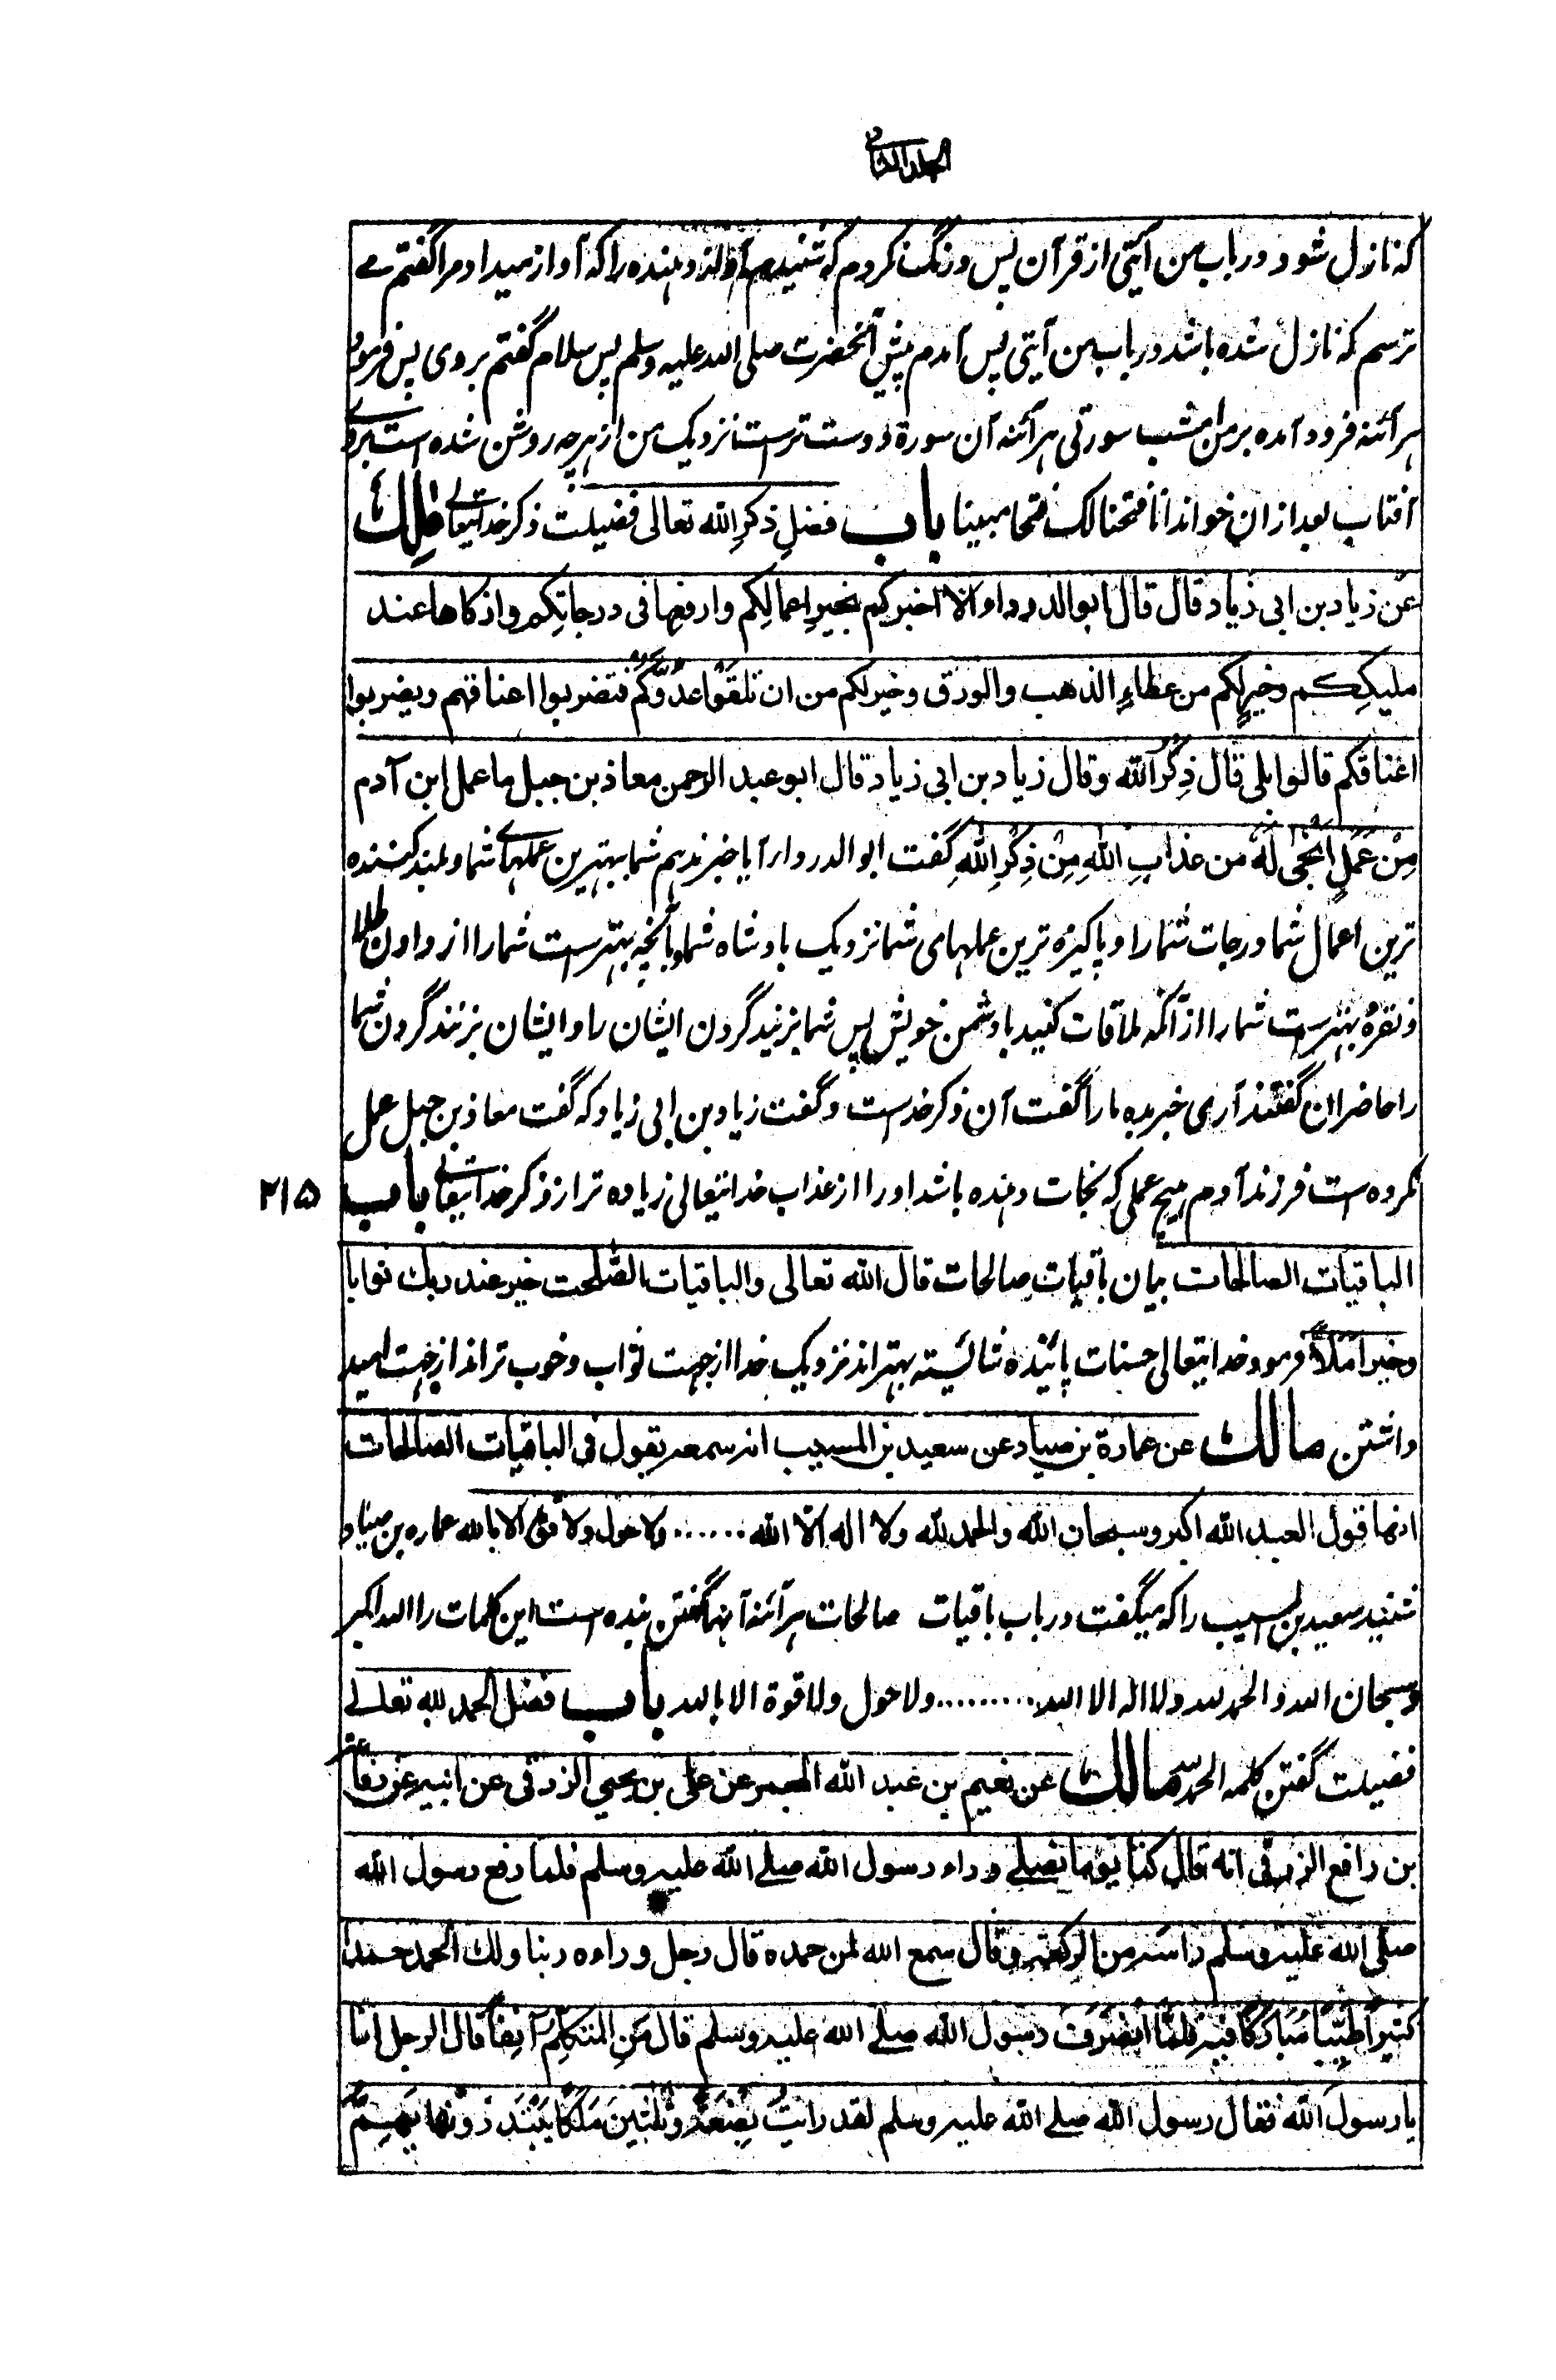 الجلد الثانی
که نازل شود در باب من آیتی از قرآن پس درنگ نکردم که شنیدم آواز دهنده را که آواز میداد مرا گفتم مے
ترسم که نازل شده باشد در باب من آیتی پس آمدم پیش آنحضرت صلی الله علیه وسلم پس سلام گفتم بر وی پس فرمود
هر آئنه فرود آمده بر من امشب سورتی هر آئنه آن سورة دوست ترست نزدیک من از هر چه روشن شده است بروی
آفتاب بعد ازان خواند انا فتحنا لک فتحا مبینا باب فضل ذکر الله تعالی فضیلت ذکر خدایتعالی مالك
عن زیاد بن ابی زیاد قال قال ابو الدرداء الا اخبرکم بخیر اعمالِکم وارفعها فی درجاتِکم وازکاها عند
ملیکِکم وخیرٍ لکم من عطاءِ الذهب والورق وخیر لکم من ان تلقَوْا عدُوَّکُم فتضربوا اعناقهم ویضربوا
اعناقکم قالوا بلی قال ذِکرُ الله وقال زیاد بن ابی زیاد قال ابو عبد الرحمن معاذ بن جبل ما عمل ابن آدم
مِنْ عَمَلٍ اَنجٰی لَهُ من عذابِ اللهِ مِنْ ذِکْرِ اللهِ گفت ابو الدرداء آیا خبر ندهم شما ببهترین عملهای شما و بلند کننده
ترین اعمال شما درجات شما را و پاکیزه ترین عملهای شما نزدیک بادشاه شما و بآنچه بهترست شما را از دادن طلا
و نقره بهترست شما را از آنکه ملاقات کنید با دشمن خویش پس شما بزنید گردن ایشان را و ایشان بزنند گردن شما
را حاضران گفتند آری خبر بده ما را گفت آن ذکر خداست و گفت زیاد بن ابی زیاد که گفت معاذ بن جبل عمل
نکرده است فرزند آدم هیچ عملی که نجات دهنده باشد او را از عذاب خدایتعالی زیاده تر از ذکر خدایتعالی باب
۲۱۵
الباقیات الصالحات بیان باقیات صالحات قال الله تعالی والباقیات الصّٰلحت خیر عند ربك ثوابا
وخیر املاً فرمود خدایتعالی حسنات پائنده شائسته بهتراند نزدیک خدا از جهت ثواب و خوب تراند از جهت امید
داشتن مالك عن عمارة بن صیاد عن سعید بن المسیب انه سمعه یقول فی الباقیات الصالحات
انها قول العبد الله اکبر وسبحان الله والحمد لله ولا اله الا الله ...... ولا حول ولا قوة الا بالله عماره بن صیاد
شنید سعید بن المسیب را که میگفت در باب باقیات صالحات هر آئنه آنها گفتن بنده است این کلمات را الله اکبر
وسبحان الله والحمد لله ولا اله الا الله ......... ولا حول ولا قوة الا بالله باب فضل الحمد لله تعالے
فضیلت گفتن کلمه الحمد لله مالك عن نعیم بن عبد الله المجمر عن علی بن یحیی الزرقی عن ابیه عن رفاعة
بن رافع الزرقی انه قال کنا یوما نصلے وراء رسول الله صلے الله علیه وسلم فلما رفع رسول الله
صلی الله علیه وسلم راسَه من الرکعة وقال سمع الله لمن حمده قال رجل وراءه ربنا ولك الحمد حمدا
کثیراً طیّبًا مُبارَکًا فیه فلمّا انصَرَفَ رسول الله صلے الله علیه وسلم قال مَنِ المتکلِّمُ آنِفاً قال الرجل انا
یا رسول الله فقال رسول الله صلے الله علیه وسلم لقد رایتُ بِضْعَةً وثلٰثینَ مَلَکًا یَبْتَدِرُونها ایّهم